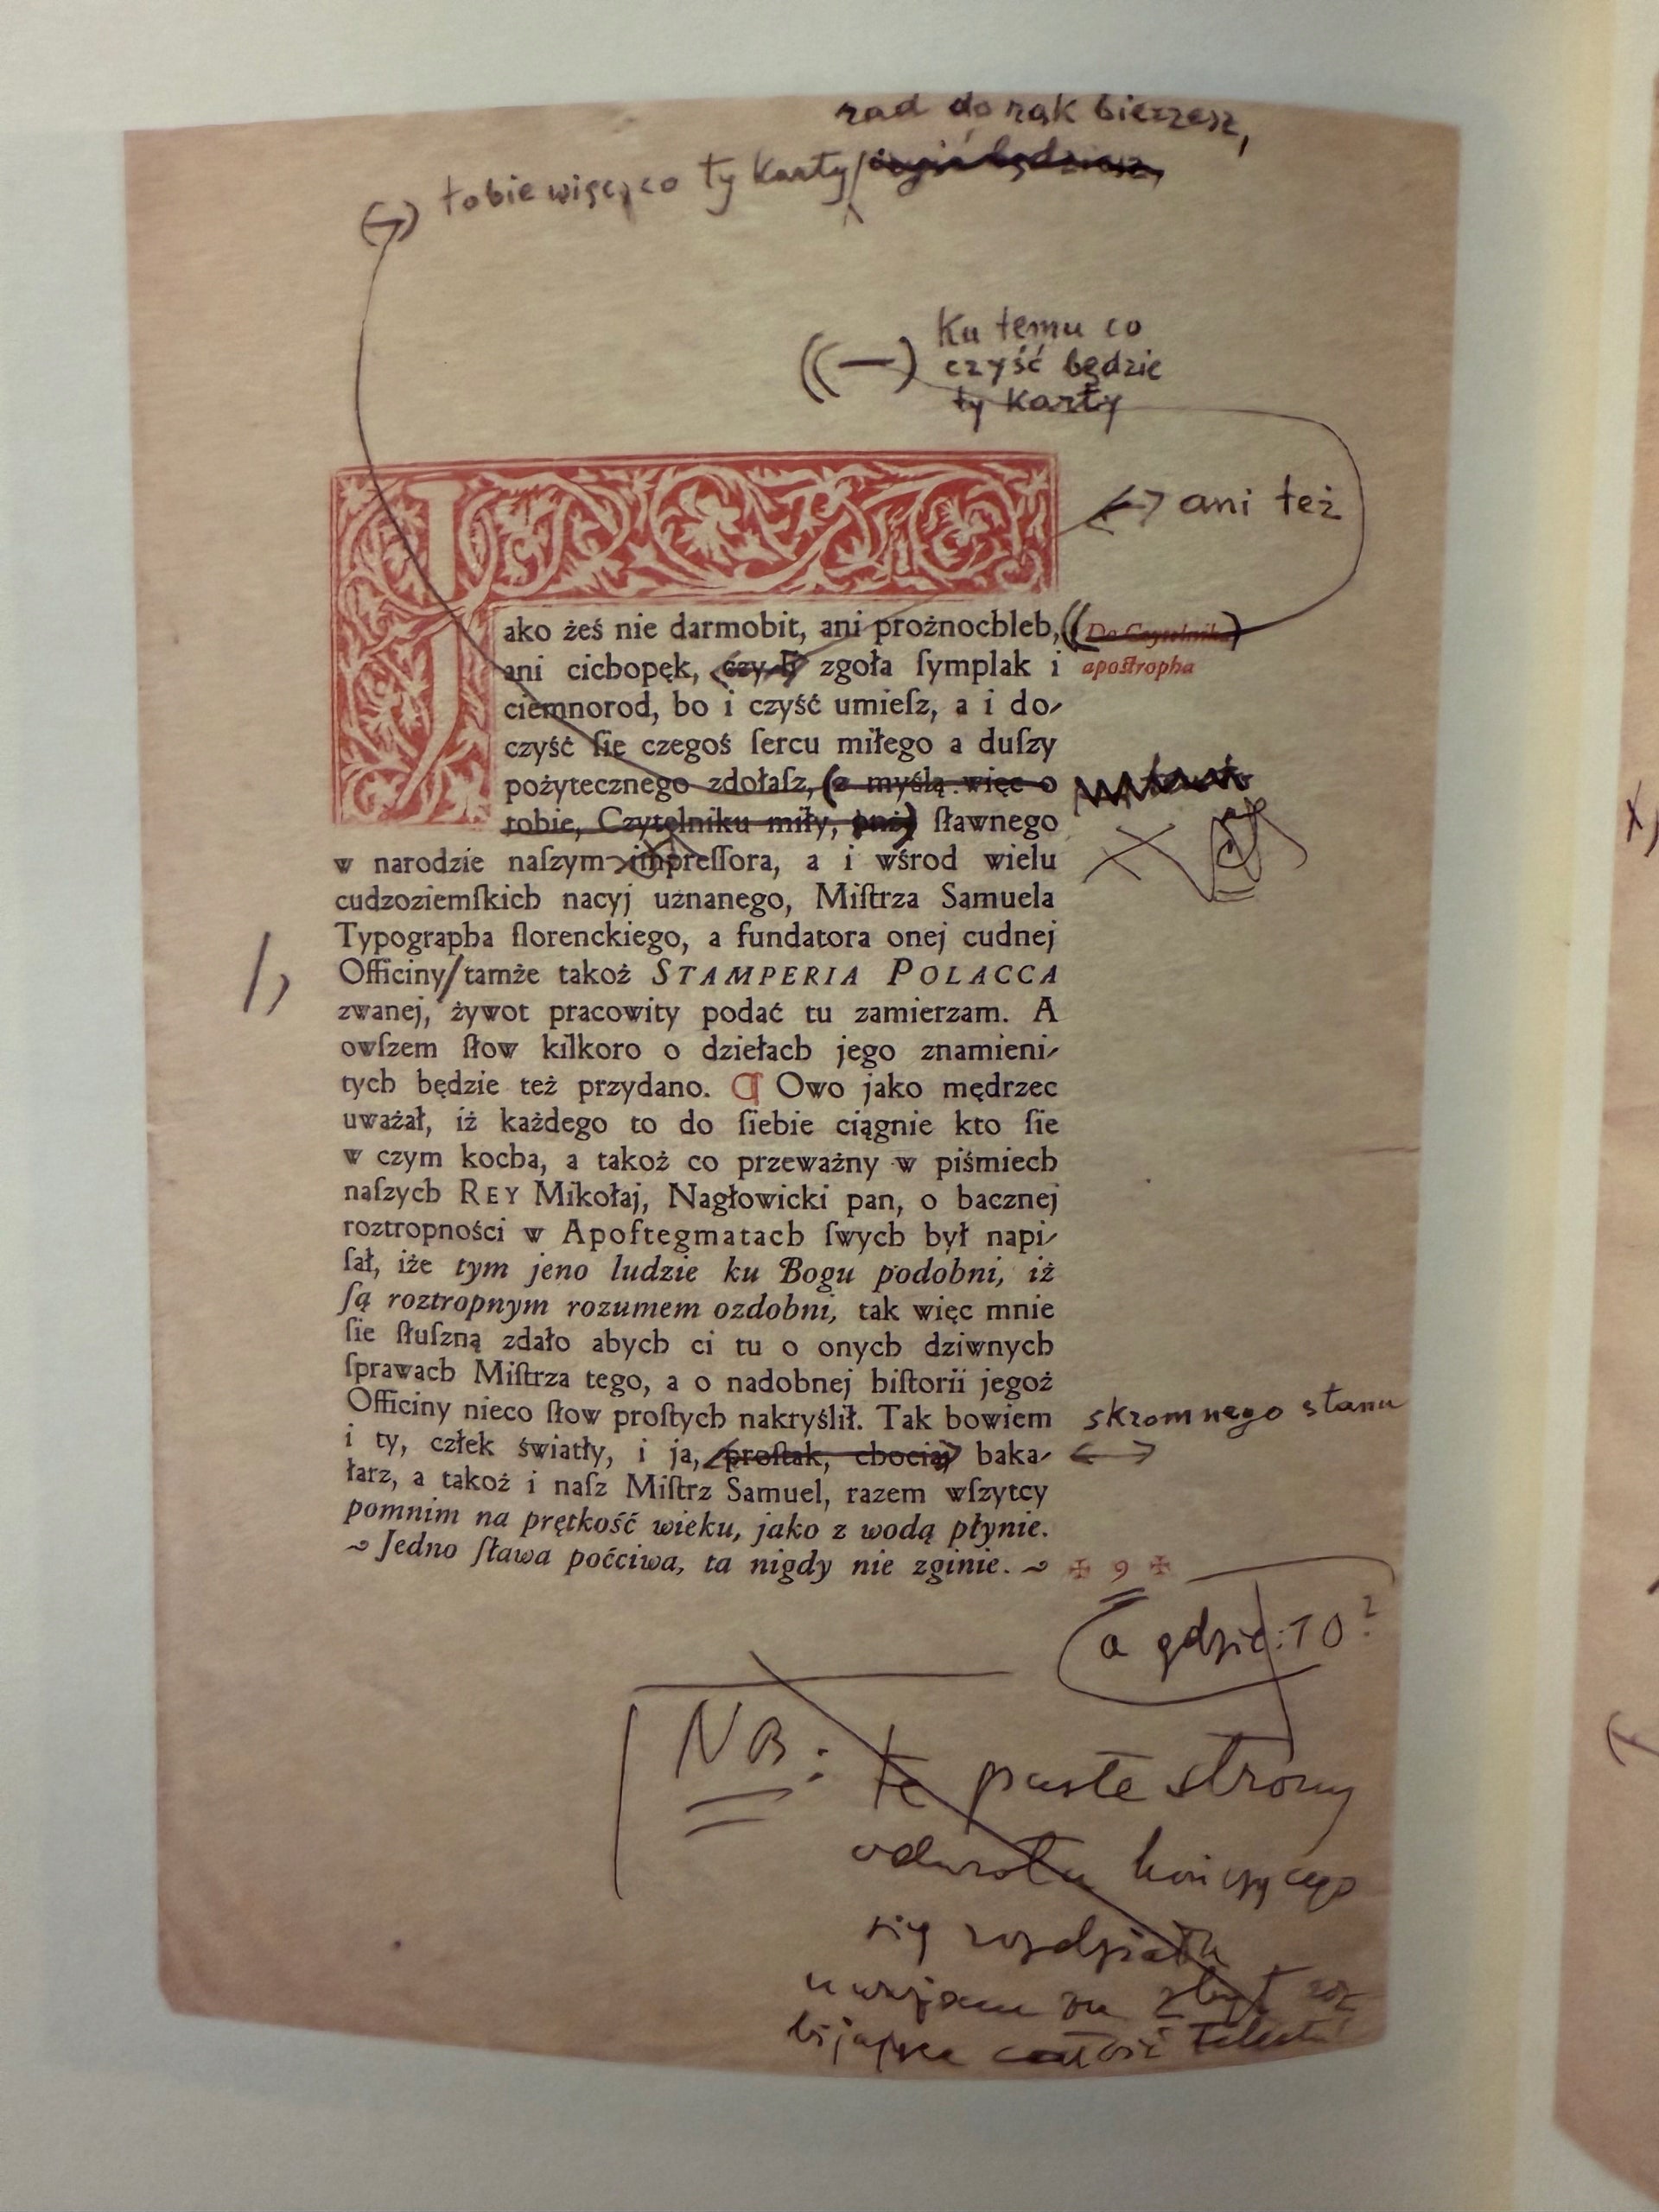 rad do rąk bierzesz,
tobie więc, co ty karty/
Ku temu co
czyść będzie
ty karty
ani też
Jako żeś nie darmobit, ani prożnochleb,
Do Czytelnika
ani cichopęk, czy li zgoła ſymplak i
apostropha
ciemnorod, bo i czyść umieſz, a i do-
czyść ſie czegoś ſercu miłego a duſzy
pożytecznego zdołaſz, (z myślą więc o
tobie, Czytelniku miły, ) ſławnego
w narodzie naſzym impreſſora, a i wśrod wielu
cudzoziemſkich nacyj uznanego, Miſtrza Samuela
Typographa florenckiego, a fundatora onej cudnej
/,
Officiny/tamże takoż STAMPERIA POLACCA
zwanej, żywot pracowity podać tu zamierzam. A
owſzem ſłow kilkoro o dziełach jego znamieni-
tych będzie też przydano. ¶ Owo jako mędrzec
uważał, iż każdego to do ſiebie ciągnie kto ſie
w czym kocha, a takoż co przeważny w piśmiech
naſzych REY Mikołaj, Nagłowicki pan, o bacznej
roztropności w Apoftegmatach ſwych był napi-
ſał, iże tym jeno ludzie ku Bogu podobni, iż
ſą roztropnym rozumem ozdobni, tak więc mnie
ſie ſłuſzną zdało abych ci tu o onych dziwnych
ſprawach Miſtrza tego, a o nadobnej hiſtorii jegoż
Officiny nieco ſłow proſtych nakryślił. Tak bowiem
skromnego stanu
i ty, człek światły, i ja, proſtak, chociaj baka-
łarz, a takoż i naſz Miſtrz Samuel, razem wſzytcy
pomnim na prętkość wieku, jako z wodą płynie.
~ Jedno ſława poćciwa, ta nigdy nie zginie. ~ ✠ 9 ✠
a gdzie: 10?
NB: te puste strony
odwrotu kończącego
się rozdziału
uważam za zbyt roz
bijające całość tekstu